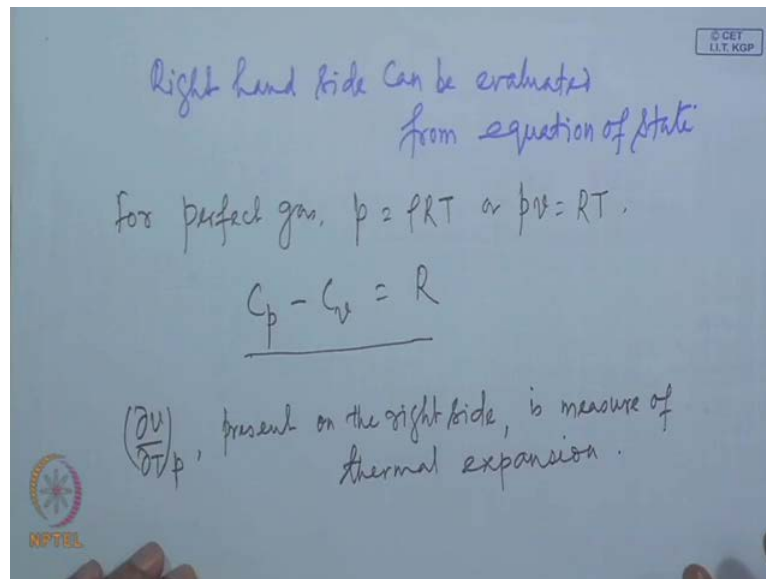 © CET
I.I.T. KGP
Right hand side can be evaluated
from equation of state
For perfect gas, p = ρRT or pv = RT.
Cp - Cv = R
(∂v/∂T)p, present on the right side, is measure of
thermal expansion.
NPTEL